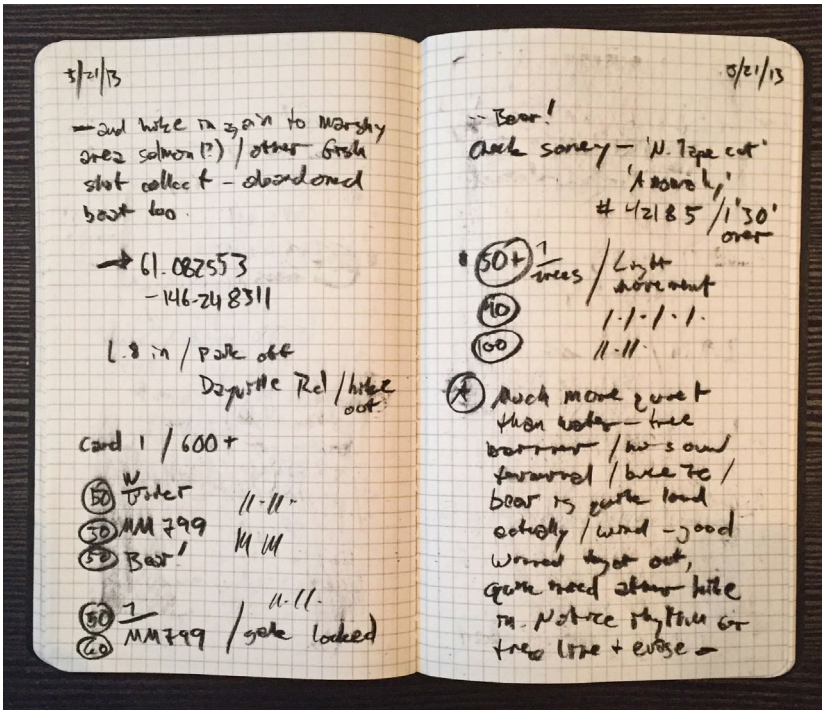 5/21/13
— and hike in again to marshy
area salmon(?) / other fish
shot collect – abandoned
boat too.
→ 61.082553
-146.248311
1.8 in / park off
Dayville Rd / hike
out.
Card 1 / 600+
50
50 MM799 M M
50 Bear!
50 1
60 MM799 / gate locked
5/21/13
-- Bear!
Check – 'N. Tape cut'
# 42185 / 1'30'
over
50+ 1 trees / Light
movement
90 /·/·/·/·
100 //·//·
Much more quiet
than water – tree
barrier / no sound
terminal /
bear is quite loud
actually / wind – good
out,
quite hike
in. Notice rhythm for
tree line +